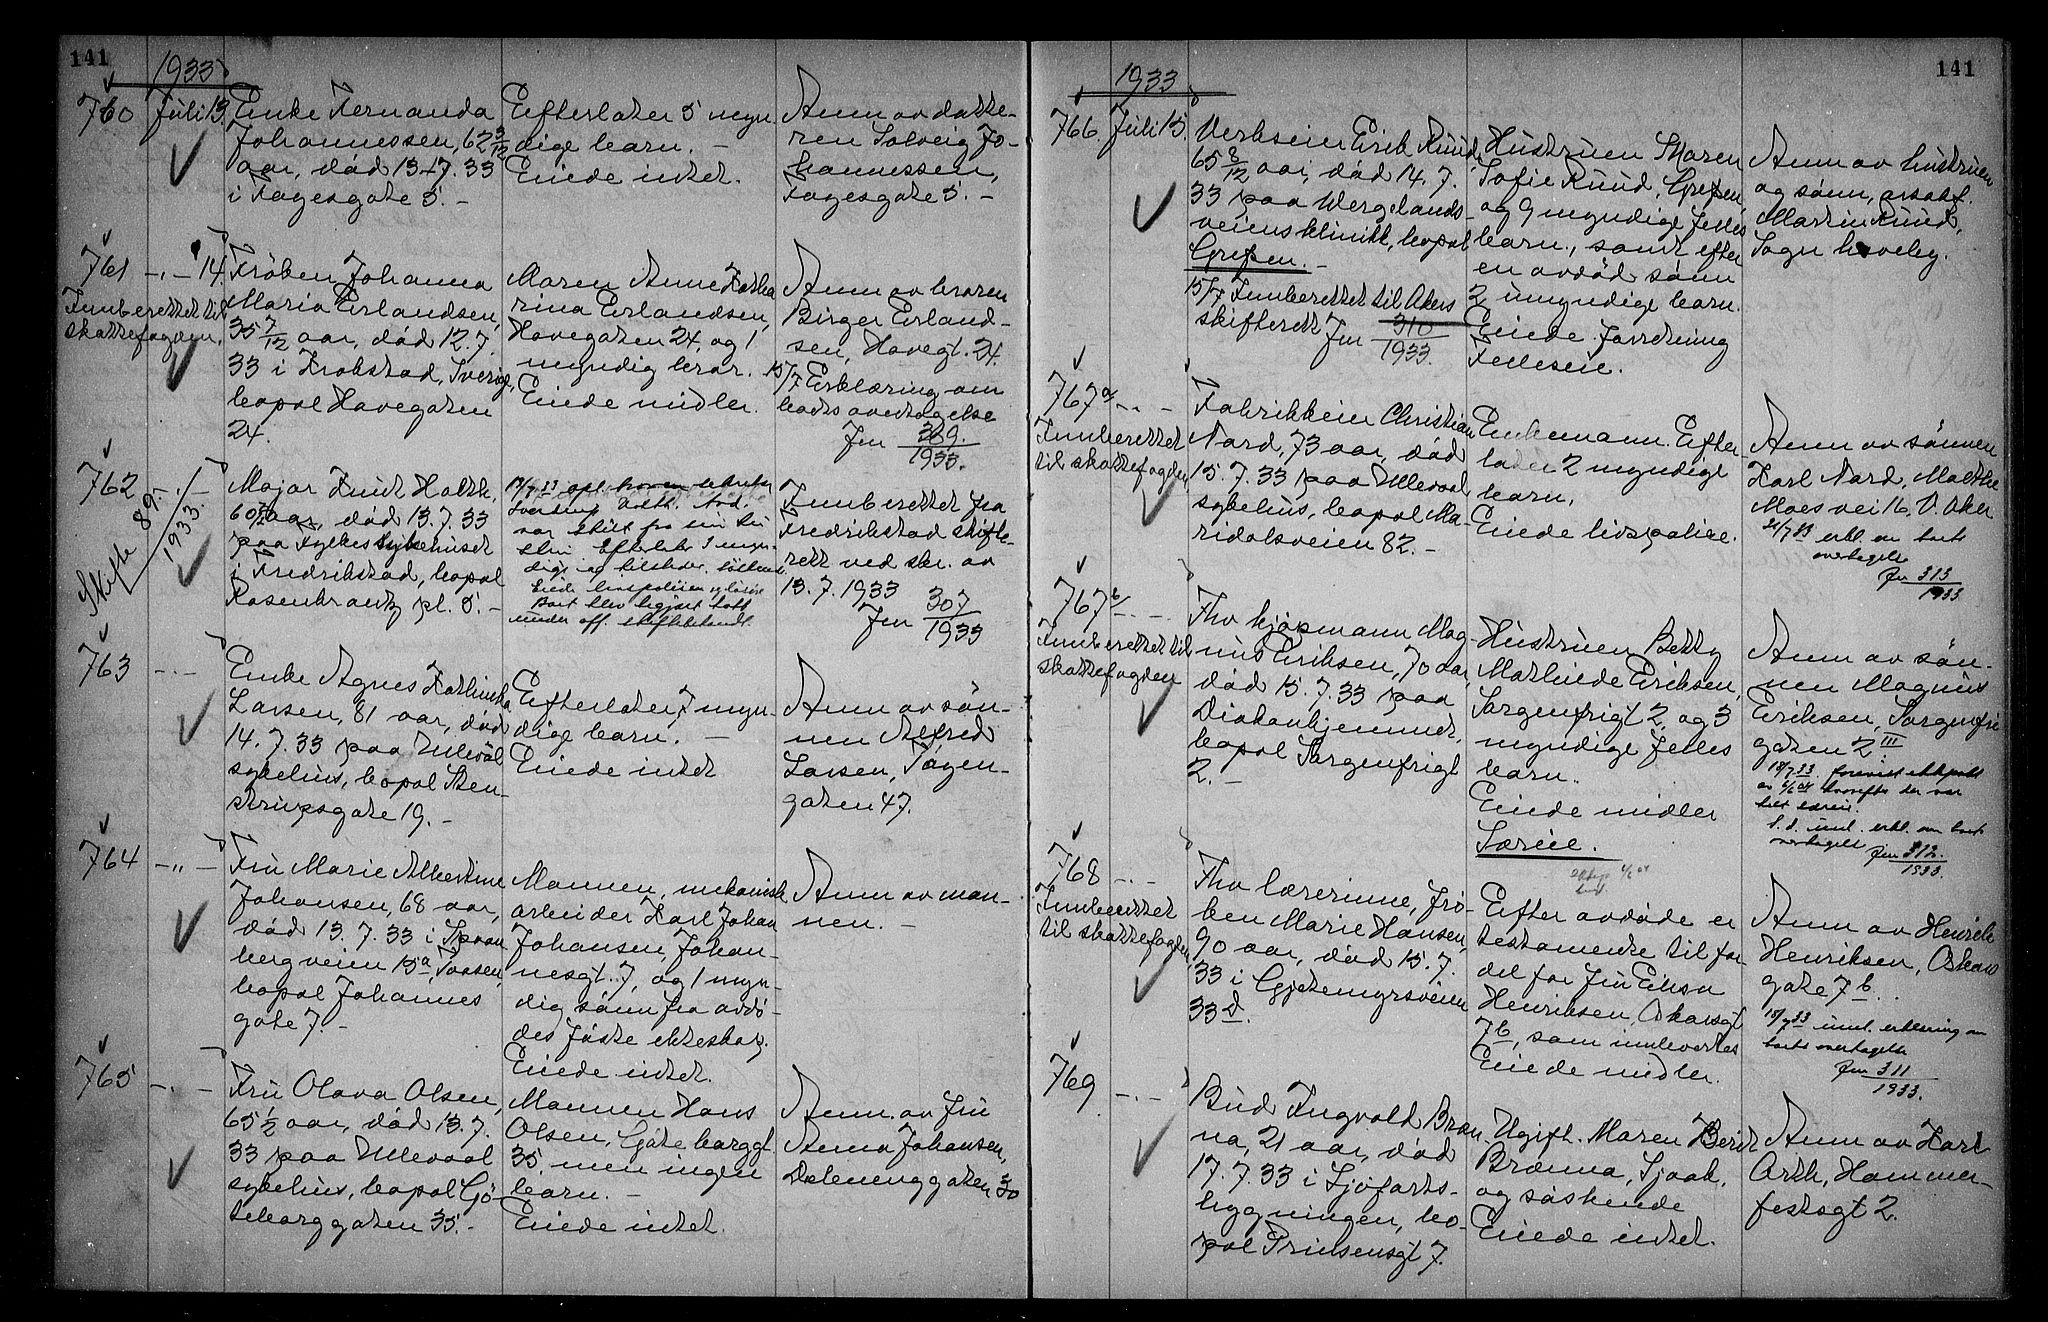 141
1933
760 Juli 13. Enke Fernanda
Johannessen, 62 3/12
aar, død 13.7.33
i Fagesgate 5. -
Efterlater 5 myn
dige barn. -
Eiede intet.
Anm av datte-
ren Solveig Jo-
hannessen,
Fagesgate 5. -
761 -"- 14.
Innberettet til
skattefogden.
Frøken Johanna
Maria Erlandsen,
35 7/12 aar, død 12.7.
33 i Krokstad, Sverige,
bopæl Havegaten
24.
Maren Anne Katha
rina Erlandsen,
Havegaten 24, og 1
myndig bror.
Eiede midler.
Anm av broren
Birger Erland-
sen, Havegt. 24.
15/7 Erklæring om
boets overtagelse
Jnr 309.
1933.
762 -"-
Skifte 89.
1933.
Major Knut Holth,
60 aar, død 13.7.33
paa Fylkessykehuset
i Fredrikstad, bopæl
Rosenkrantz pl. 5. -
var skilt fra sin hu
stru. Efterlater 3 myn-
dige
Eiede livspolisen og løsøre
Boet blev begjært tatt
under off. skiftebehandl
Innberettet fra
Fredrikstad skifte-
rett ved skr. av
13.7.1933
Jnr 307
1933
763 -"-
Enke Agnes Kathinka
Larsen, 81 aar, død
14.7.33 paa Ullevål
sykehus, bopæl Sten-
strupsgate 19. -
Efterlater 7 myn-
dige barn. -
Eiede intet
Anm av søn-
nen Alfred
Larsen, Tøyen-
gaten 47.
764 -"-
Fru Marie Albertine
Johansen, 68 aar,
død 13.7.33 i
bergveien 15a, Tåsen,
bopæl Johannes
gate 7. -
Mannen, mekanisk
arbeider Karl Johan
Johansen, Johan-
nesgt. 7, og 1 myn-
dig sønn fra avdø-
des første ekteskap.
Eiede intet.
Anm av man-
nen. -
765 -"-
Fru Olava Olsen,
65 1/2 aar, død 13.7.
33 paa Ullevaal
sykehus, bopæl Gjø-
teborggaten 35. -
Mannen Hans
Olsen, Gøteborggt.
35, men ingen
barn. -
Eiede intet.
Anm. av fru
Anna Johansen,
Delenenggaten 30
141
1933
766 Juli 15.
Verkseier Erik Ruud
65 8/12 aar, død 14.7.
33 paa Wergelands-
veiens klinikk, bopæl
Grefsen. -
15/7 Innberettet til Akers
skifterett Jnr 310
1933.
Hustruen Maren
Sofie Ruud, Grefsen,
og 9 myndige felles
barn, samt efter
en avdød sønn
2 umyndige barn.
Eiede forretning
Felleseie.
Anm av hustruen
og sønn, prokf.
Martin Ruud,
Sogn haveby.
767a -"-
Innberettet
til skattefogden
Fabrikkeier Christian
Nard, 73 aar, død
15.7.33 paa Ullevål
sykehus, bopæl Ma-
ridalsveien 82. -
Enkemann. Efter-
later 2 myndige
barn.
Eiede livspolise.
Anm av sønnen
Karl Nard, Moltke
Moes vei 16, V. Aker
21/7 33 erkl. om boets
overtagelse
Jnr 313
1933
767b -"-
Innberettet til
skattefogden
Fhv kjøpmann Mag-
nus Eriksen, 70 aar,
død 15.7.33 paa
Diakonhjemmet,
bopæl Sorgenfrigt
2. -
Hustruen Betty
Mathilde Eriksen,
Sorgenfrigt 2, og 3
myndige felles
barn.
Eiede midler
Særeie.
Anm av søn-
nen Magnus
Eriksen, Sorgenfri
gaten 2 III
18/7 33 forevist ektepakt
av 6/6 04 hvorefter der var
helt særeie.
S. d. innl. erkl. om boets
overtagelse Jnr 312.
1933.
768 -"-
Innberettet
til skattefogden
Fhv lærerinne, frø-
ken Marie Hansen,
90 aar, død 15.7.
33 i Gjetemyrsveien
33 d.
Efter avdøde er
testamente til for
del for fru Elisa
Henriksen, Oskarsgt
7b, som innlevertes
Eiede midler.
Anm av Henrik
Henriksen, Oskars
gate 7b.
18/7 33 innl. erklæring om
boets overtagelse
Jnr 311
1933.
769 -"-
Bud Ingvald Bræn
na, 21 aar, død
17.7.33 i Sjøfarts-
bygningen, bo-
pæl Prinsensgt 7.
Ugift. Maren Berit
Brænna, Sjoak,
og søskende
Eiede intet.
Anm av Karl
Orth, Hammer-
festsgt 2.